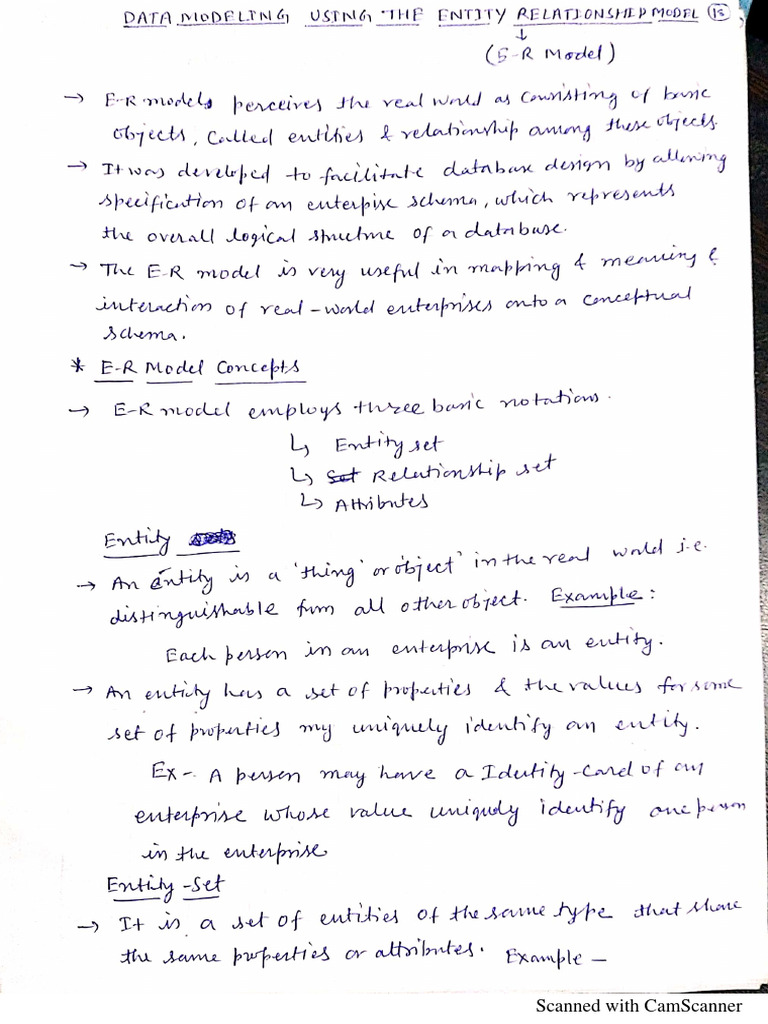 DATA MODELING USING THE ENTITY RELATIONSHIP MODEL 13
↓
(E-R Model)
→ E-R models perceives the real world as consisting of basic
objects, called entities & relationship among these objects.
→ It was developed to facilitate database design by allowing
specification of an enterpise schema, which represents
the overall logical structure of a database.
→ The E-R model is very useful in mapping & meaning &
interaction of real-world enterprises onto a conceptual
schema.
* E-R Model Concepts
→ E-R model employs three basic notations.
↳ Entity set
↳ Relationship set
↳ Attributes
Entity
→ An entity is a 'thing' or object' in the real world i.e.
distinguishable from all other object. Example:
Each person in an enterprise is an entity.
→ An entity has a set of properties & the values for some
set of properties my uniquely identify an entity.
Ex- A person may have a Identity-card of any
enterprise whose value uniquely identify one person
in the enterprise
Entity-Set
→ It is a set of entities of the same type that share
the same properties or attributes. Example -
Scanned with CamScanner